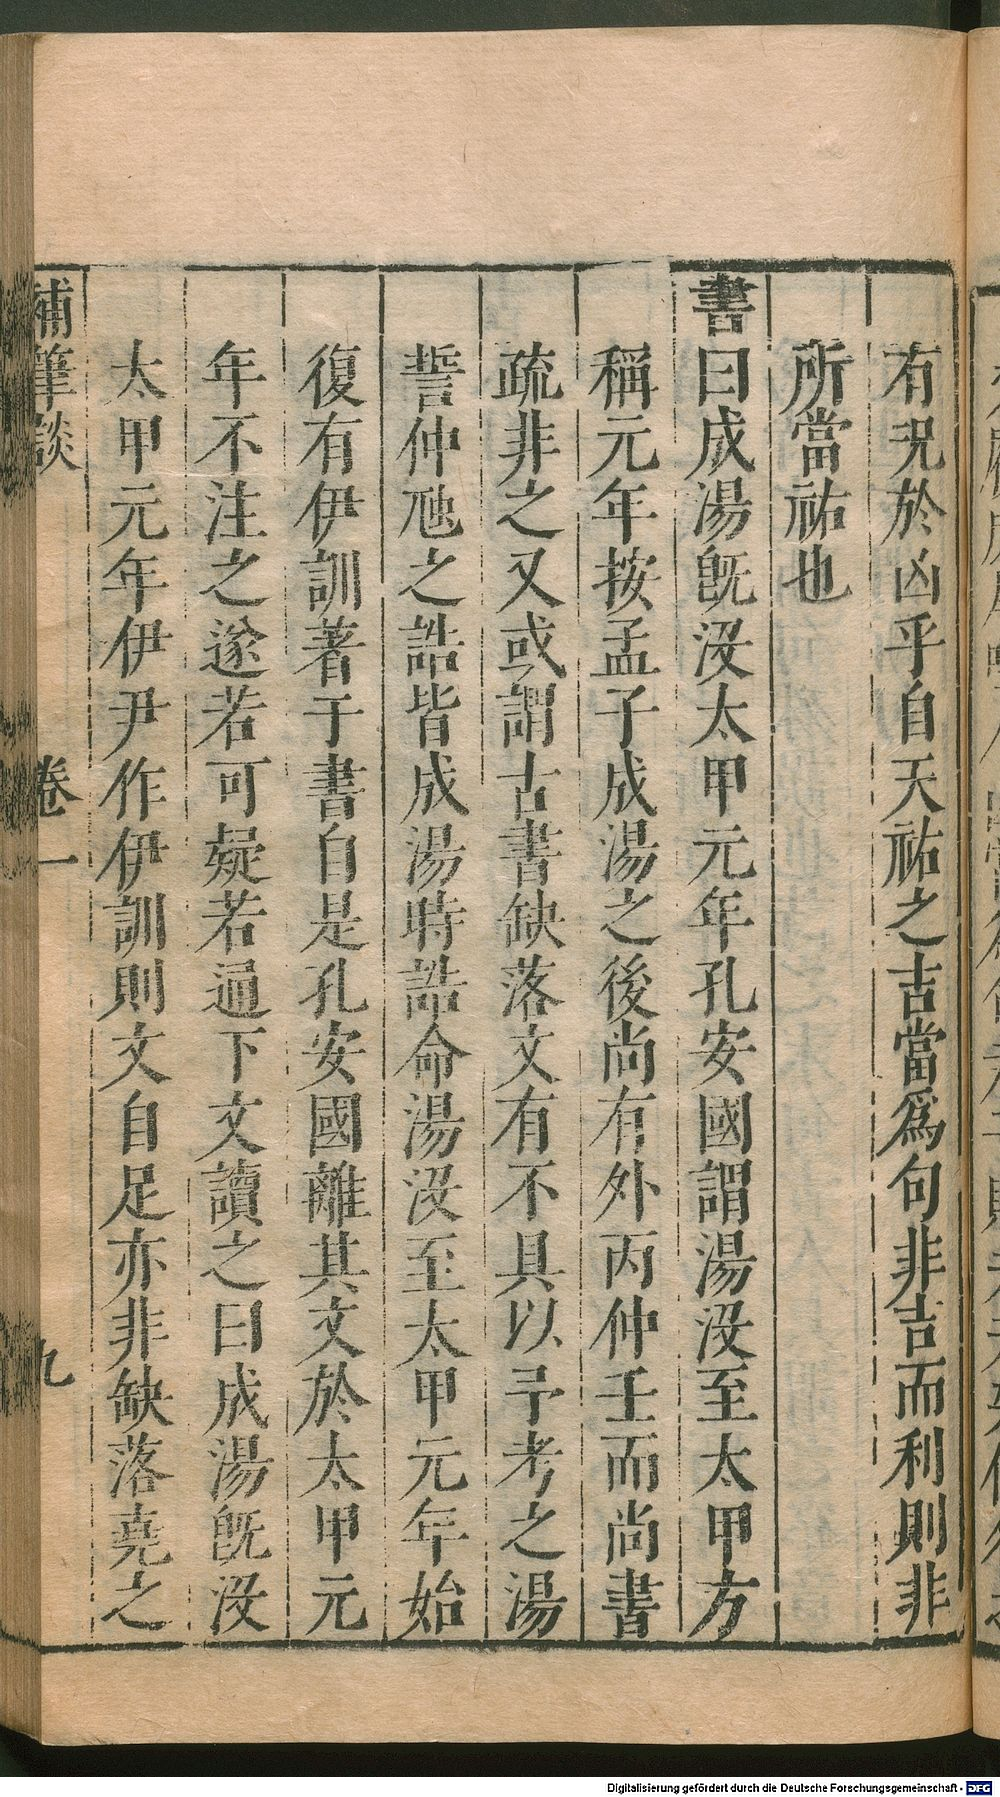 有況於凶乎自天祐之吉當爲句非吉而利則非
所當祐也
書曰成湯旣没太甲元年孔安國謂湯没至太甲方
稱元年按孟子成湯之後尚有外丙仲壬而尚書
疏非之又或謂古書缺落文有不具以予考之湯
誓仲虺之誥皆成湯時誥命湯没至太甲元年始
復有伊訓著于書自是孔安國離其文於太甲元
年不注之遂若可疑若通下文讀之曰成湯旣没
太甲元年伊尹作伊訓則文自足亦非缺落堯之
補筆談 卷一 九
Digitalisierung gefördert durch die Deutsche Forschungsgemeinschaft - DFG